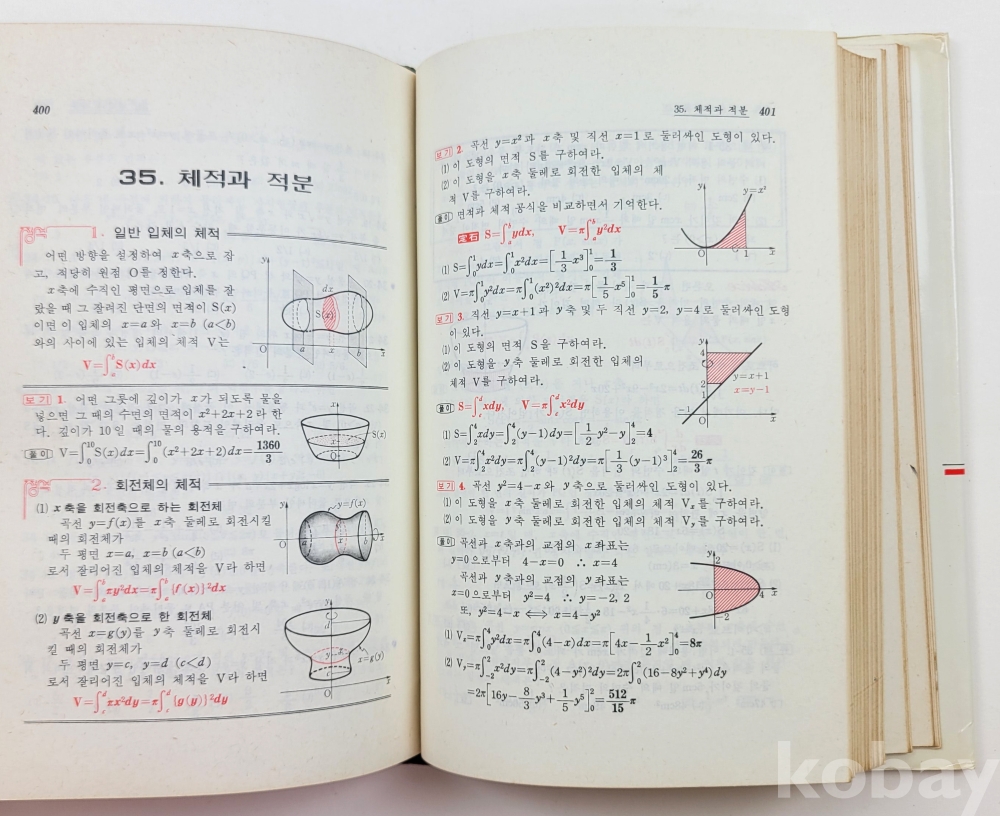 400
35. 체적과 적분
1. 일반 입체의 체적
어떤 방향을 설정하여 x축으로 잡
고, 적당히 원점 O를 정한다.
x축에 수직인 평면으로 입체를 잘
랐을 때 그 잘려진 단면의 면적이 S(x)
이면 이 입체의 x=a와 x=b (a<b)
와의 사이에 있는 입체의 체적 V는
V=∫ₐᵇS(x)dx
y
dx
S(x)
O a x b x
보기 1. 어떤 그릇에 깊이가 x가 되도록 물을
넣으면 그 때의 수면의 면적이 x²+2x+2라 한
다. 깊이가 10일 때의 물의 용적을 구하여라.
풀이 V=∫₀¹⁰S(x)dx=∫₀¹⁰(x²+2x+2)dx=1360/3
x
S(x)
x
O
2. 회전체의 체적
(1) x축을 회전축으로 하는 회전체
곡선 y=f(x)를 x축 둘레로 회전시킬
때의 회전체가
두 평면 x=a, x=b (a<b)
로서 잘리어진 입체의 체적을 V라 하면
V=∫ₐᵇπy²dx=π∫ₐᵇ{f(x)}²dx
y
y=f(x)
O a x b x
(2) y축을 회전축으로 한 회전체
곡선 x=g(y)를 y축 둘레로 회전시
킬 때의 회전체가
두 평면 y=c, y=d (c<d)
로서 잘리어진 입체의 체적을 V라 하면
V=∫_c^d πx²dy=π∫_c^d{g(y)}²dy
y
d
y x
x=g(y)
c
O x
35. 체적과 적분 401
보기 2. 곡선 y=x²과 x축 및 직선 x=1로 둘러싸인 도형이 있다.
(1) 이 도형의 면적 S를 구하여라.
(2) 이 도형을 x축 둘레로 회전한 입체의 체
적 V를 구하여라.
풀이 면적과 체적 공식을 비교하면서 기억한다.
定石 S=∫ₐᵇydx, V=π∫ₐᵇy²dx
(1) S=∫₀¹ydx=∫₀¹x²dx=[1/3 x³]₀¹=1/3
(2) V=π∫₀¹y²dx=π∫₀¹(x²)²dx=π[1/5 x⁵]₀¹=1/5 π
y
y=x²
O 1 x
보기 3. 직선 y=x+1과 y축 및 두 직선 y=2, y=4로 둘러싸인 도형
이 있다.
(1) 이 도형의 면적 S를 구하여라.
(2) 이 도형을 y축 둘레로 회전한 입체의
체적 V를 구하여라.
풀이 S=∫_c^d xdy, V=π∫_c^d x²dy
(1) S=∫₂⁴xdy=∫₂⁴(y-1)dy=[1/2 y²-y]₂⁴=4
(2) V=π∫₂⁴x²dy=π∫₂⁴(y-1)²dy=π[1/3 (y-1)³]₂⁴=26/3 π
y
4
2
1
y=x+1
x=y-1
-1
O x
보기 4. 곡선 y²=4-x와 y축으로 둘러싸인 도형이 있다.
(1) 이 도형을 x축 둘레로 회전한 입체의 체적 Vₓ를 구하여라.
(2) 이 도형을 y축 둘레로 회전한 입체의 체적 V_y를 구하여라.
풀이 곡선과 x축과의 교점의 x좌표는
y=0으로부터 4-x=0 ∴ x=4
곡선과 y축과의 교점의 y좌표는
x=0으로부터 y²=4 ∴ y=-2, 2
또, y²=4-x ⟺ x=4-y²
(1) Vₓ=π∫₀⁴y²dx=π∫₀⁴(4-x)dx=π[4x-1/2 x²]₀⁴=8π
(2) V_y=π∫₋₂²x²dy=π∫₋₂²(4-y²)²dy=2π∫₀²(16-8y²+y⁴)dy
=2π[16y-8/3 y³+1/5 y⁵]₀²=512/15 π
y
2
O 4 x
-2
kobay